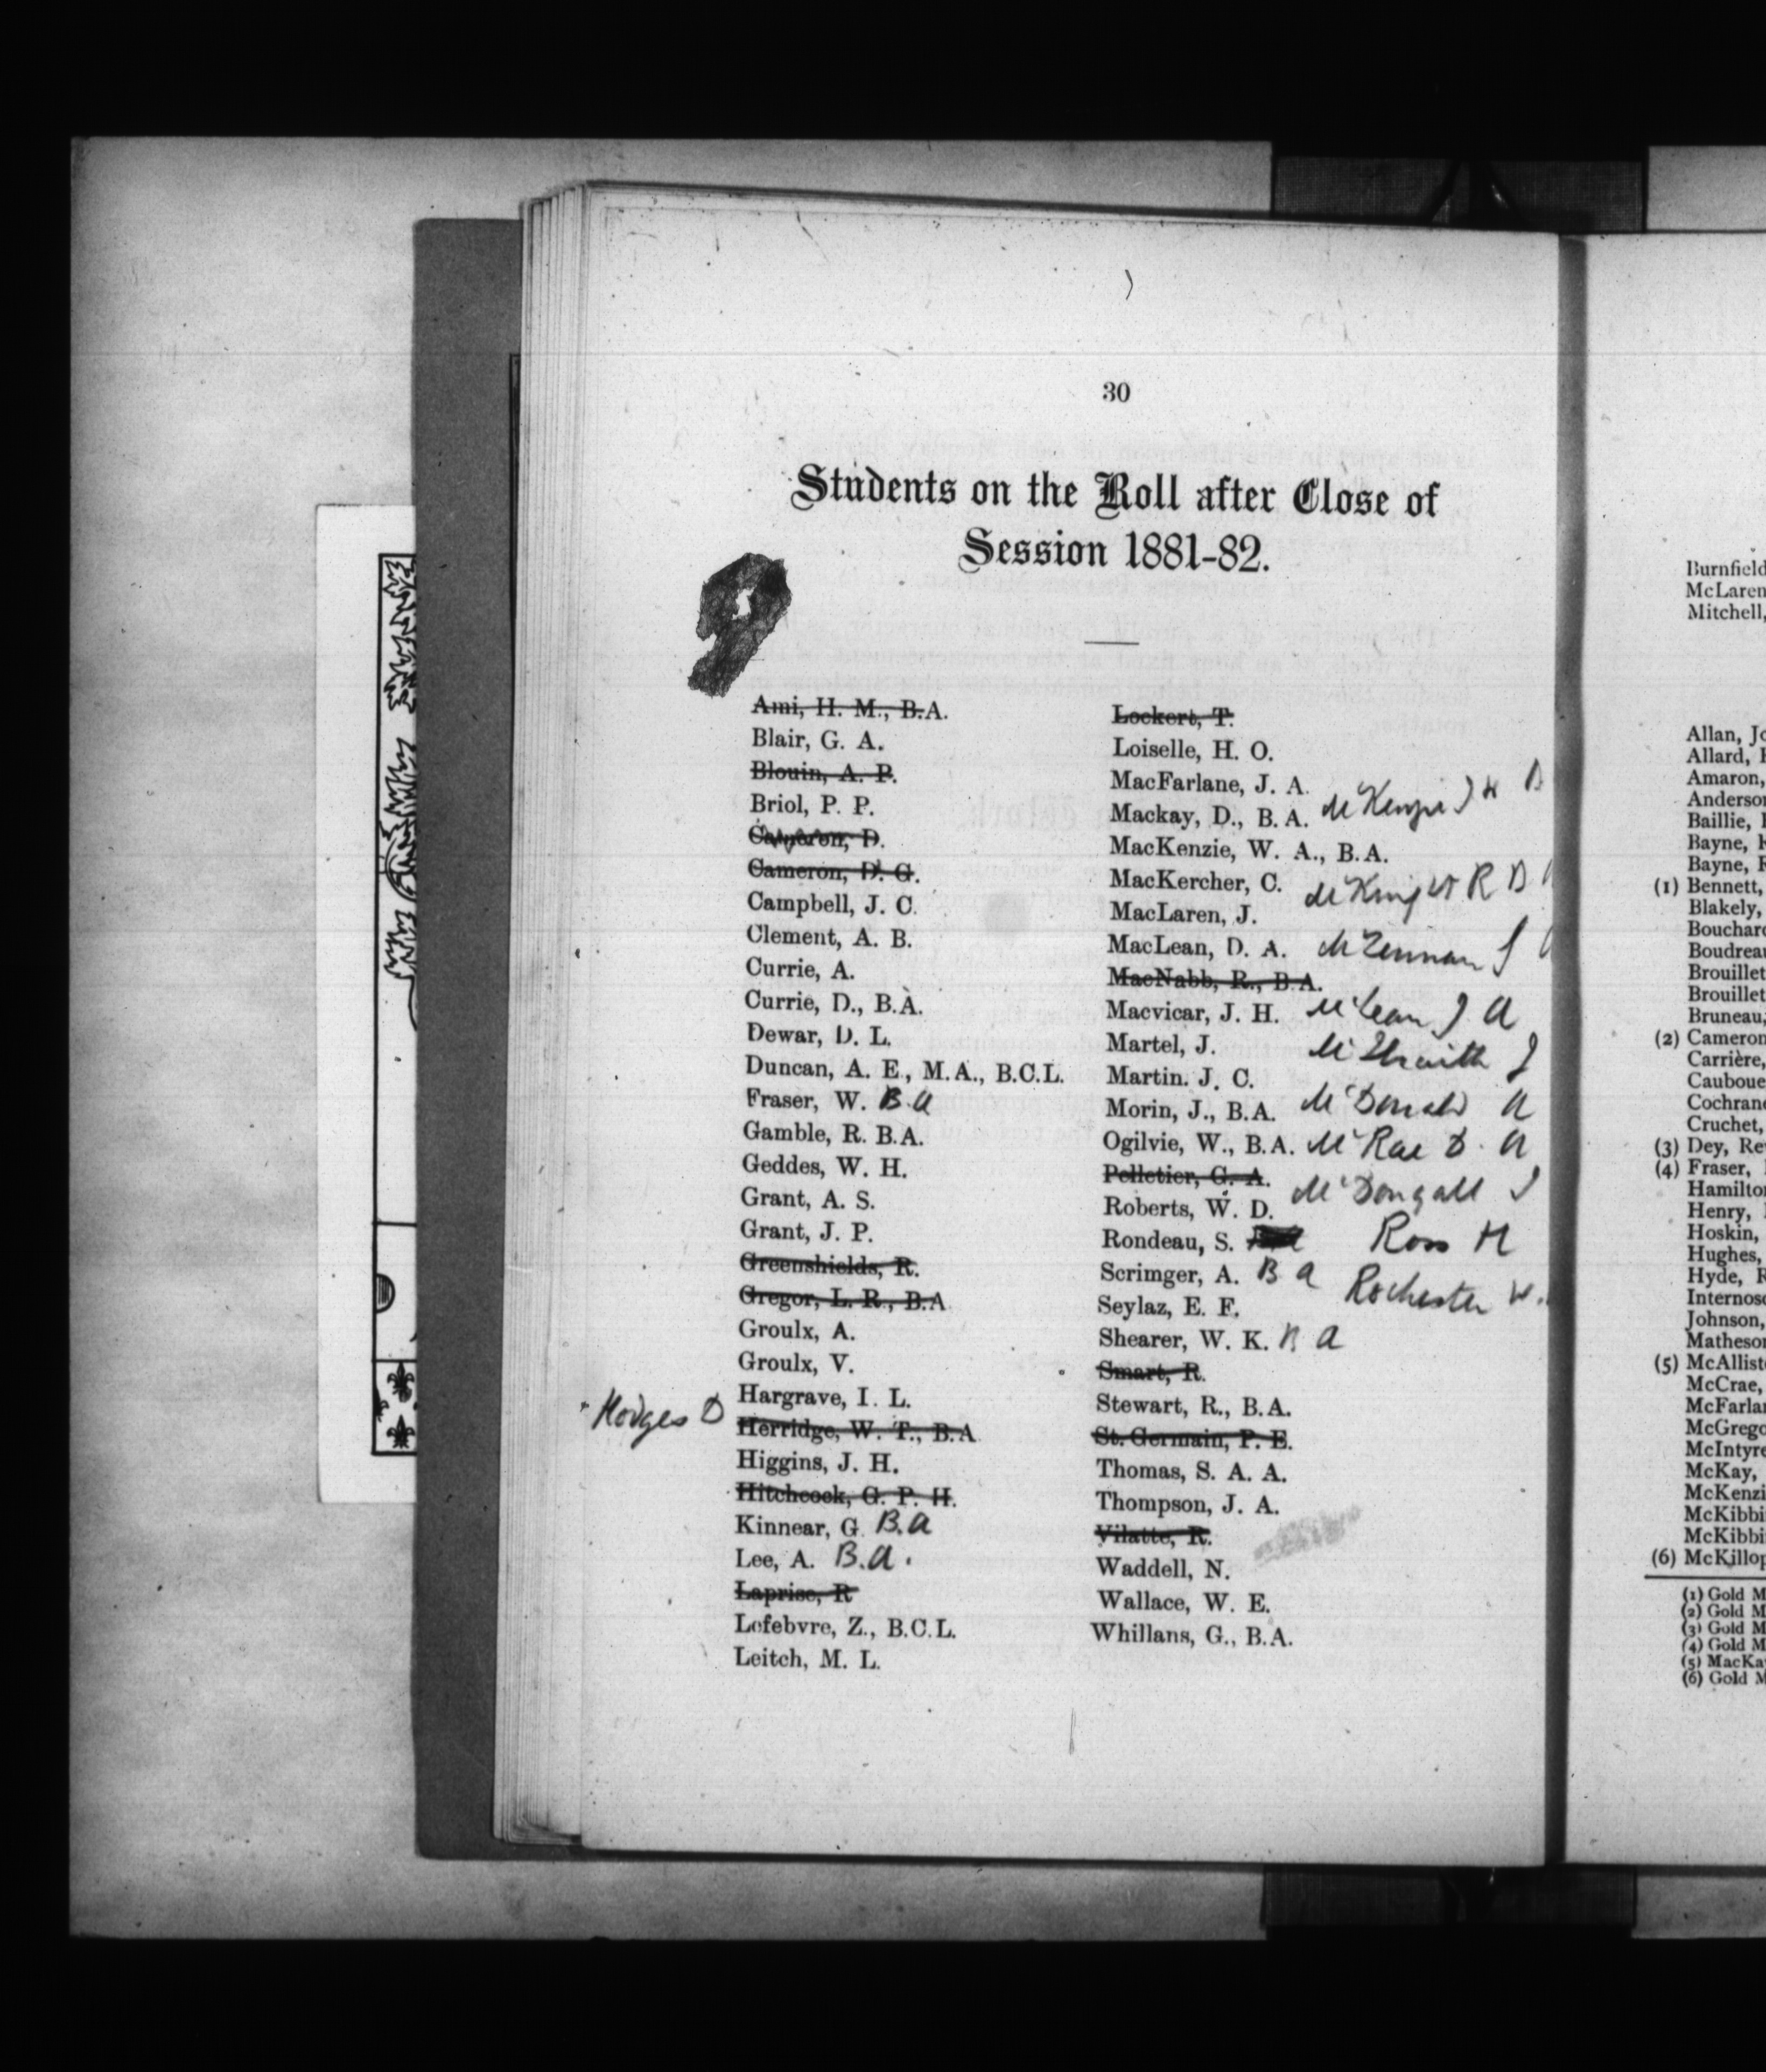 30
Students on the Roll after Close of
Session 1881-82.
Ami, H. M., B.A.
Blair, G. A.
Blouin, A. P.
Briol, P. P.
Cameron, D.
Cameron, D. G.
Campbell, J. C.
Clement, A. B.
Currie, A.
Currie, D., B.A.
Dewar, D. L.
Duncan, A. E., M.A., B.C.L.
Fraser, W. B.A
Gamble, R. B.A.
Geddes, W. H.
Grant, A. S.
Grant, J. P.
Greenshields, R.
Gregor, L. R., B.A
Groulx, A.
Groulx, V.
Hargrave, I. L.
Hodges D
Herridge, W. T., B.A
Higgins, J. H.
Hitchcock, G. P. H.
Kinnear, G. B.A
Lee, A. B.A.
Laprise, R
Lefebvre, Z., B.C.L.
Leitch, M. L.
Lockert, T.
Loiselle, H. O.
MacFarlane, J. A.
Mackay, D., B.A. McKenzie J H B
MacKenzie, W. A., B.A.
MacKercher, C.
MacLaren, J. McKnight R B
MacLean, D. A. McLennan
MacNabb, R., B.A.
Macvicar, J. H. McLean J A
Martel, J.
Martin. J. C.
Morin, J., B.A. McDonald A
Ogilvie, W., B.A. McRae D. A
Pelletier, G. A.
Roberts, W. D. McDougall J
Rondeau, S. Ross H
Scrimger, A. B A
Rochester W.
Seylaz, E. F.
Shearer, W. K. B A
Smart, R.
Stewart, R., B.A.
St. Germain, P. E.
Thomas, S. A. A.
Thompson, J. A.
Vilatte, R.
Waddell, N.
Wallace, W. E.
Whillans, G., B.A.
Burnfield
McLaren
Mitchell,
Allan, Jo
Allard,
Amaron,
Anderson
Baillie,
Bayne,
Bayne,
(1) Bennett,
Blakely,
Bouchard
Boudreau
Brouillet
Brouillet
Bruneau,
(2) Cameron
Carrière,
Cauboue
Cochrane
Cruchet,
(3) Dey, Rev
(4) Fraser,
Hamilton
Henry,
Hoskin,
Hughes,
Hyde, R
Internosc
Johnson,
Matheson
(5) McAlliste
McCrae,
McFarlan
McGrego
McIntyre
McKay,
McKenzi
McKibbi
McKibbi
(6) McKillop
(1) Gold M
(2) Gold M
(3) Gold M
(4) Gold M
(5) MacKa
(6) Gold M